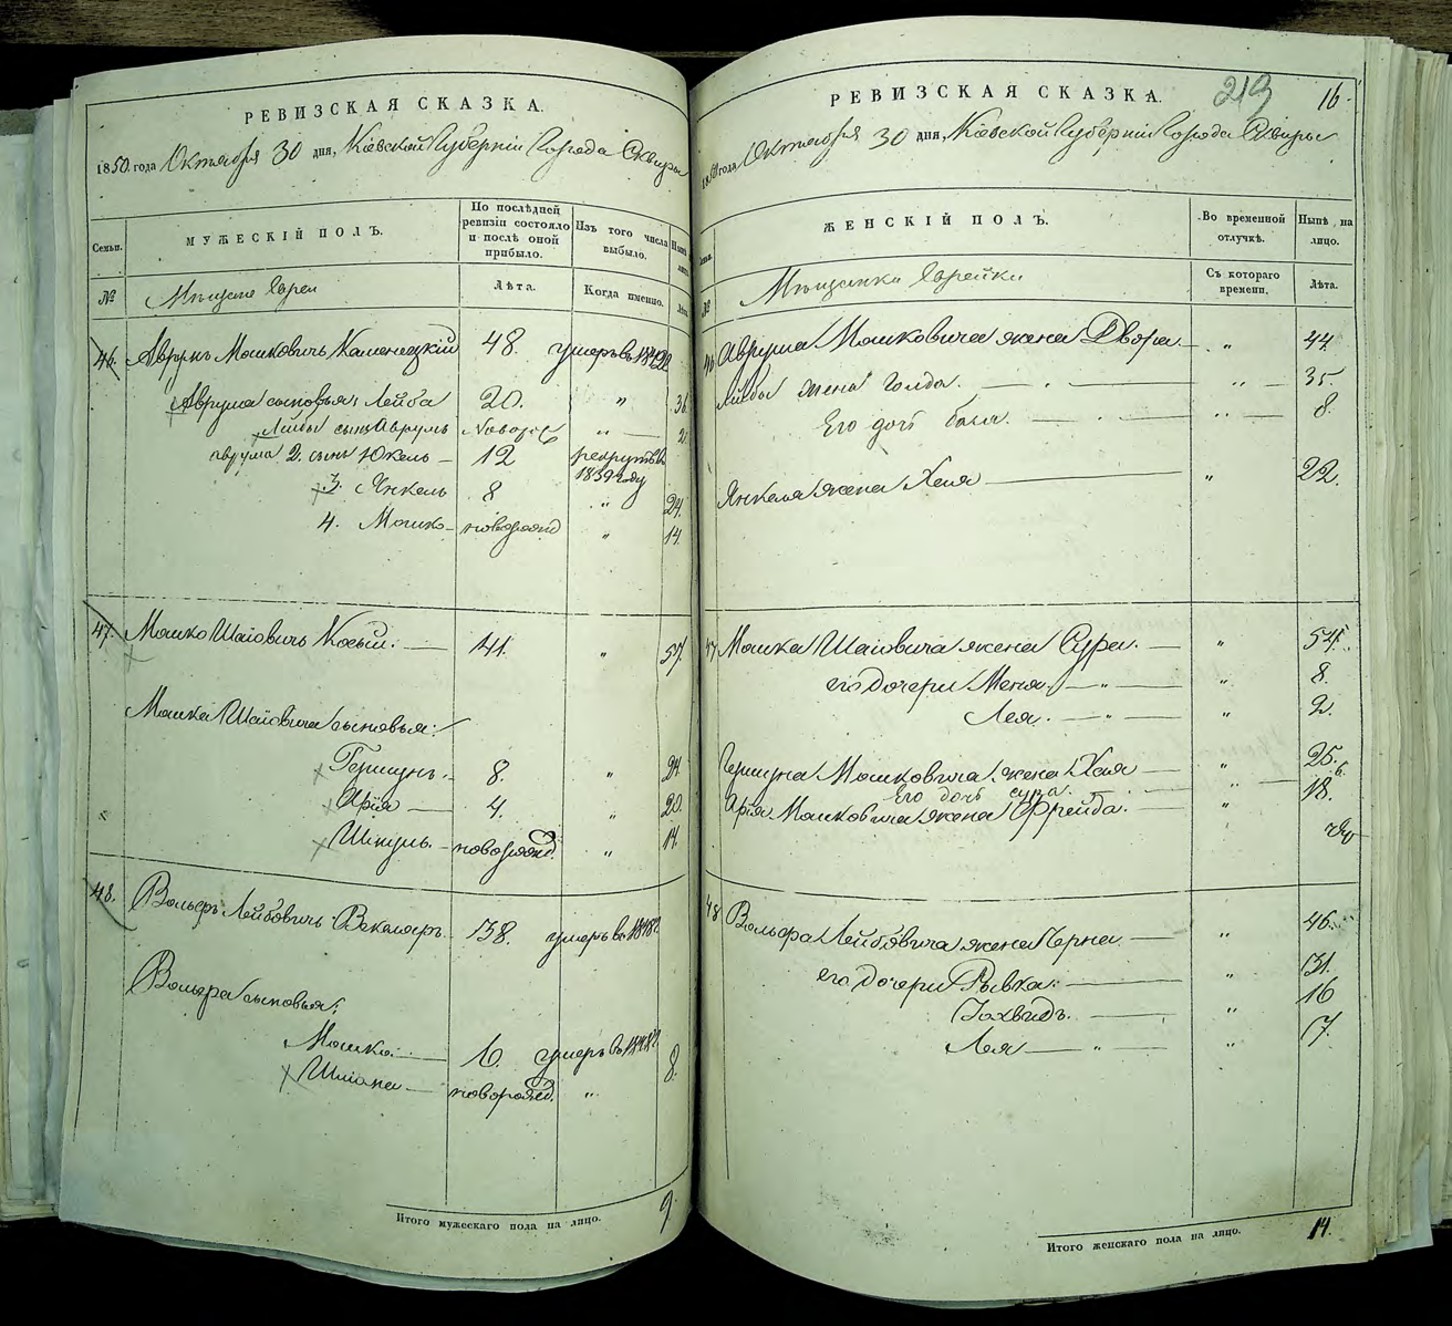 РЕВИЗСКАЯ СКАЗКА.
1850. года Октября 30 дня, Кіевской Губерніи Города Сквиры
Семьи.
МУЖЕСКІЙ ПОЛЪ.
По послѣдней ревизіи состояло и послѣ оной прибыло.
Изъ того числа выбыло.
Нынѣ на лицо.
№
Мѣщане Евреи
Лѣта.
Когда именно.
Лѣта.
46. Аврумъ Мошковичъ Каменецкій 48. умеръ въ
Аврума сыновья: Лейба 20. " 36.
Лейбы сынъ Аврумъ "
аврума 2. сынъ Юкель — 12 рекрутъ въ
1839 году
3. Янкель 8 " 24.
4. Мошко — новорожд " 14.
47. Мошко Шаіовичъ Косый. — 41. " 57.
Мошка Шаіовича сыновья:
Гершунъ. — 8. " 24.
Арія — 4. " 20.
Шмуль. — новорожд. " 14.
48. Вольфъ Лейбовичъ 38. умеръ въ
Вольфа сыновья:
Мошко — 6. умеръ въ
новорожд. " 8.
Итого мужескаго пола на лицо. 9.
РЕВИЗСКАЯ СКАЗКА.
219 16.
1850 года Октября 30 дня, Кіевской Губерніи Города Сквиры
ЖЕНСКІЙ ПОЛЪ.
Во временной отлучкѣ.
Нынѣ на лицо.
№
Мѣщанки Еврейки
Съ котораго времени.
Лѣта.
46 Аврума Мошковича жена Двора. — " 44.
Лейбы жена Голда. — " — 35.
Его дочь — " — 8.
Янкеля жена Хая — " 22.
47 Мошка Шаіовича жена Сура. — " 54.
его дочери Меня. — " — " 8.
Лея. — " — " 2.
Гершуна Мошковича жена Хая — " 25.
Его дочь сура. — " — 6.
Арія Мошковича жена Фрейда. — " 18.
48 Вольфа Лейбовича жена Черна. — " 46.
его дочери Рывка: — " 31.
— " 16
Лея — " — " 7.
Итого женскаго пола на лицо. 14.